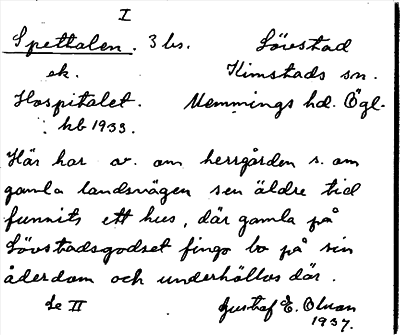 I
Spettalen. 3 bs. Lövstad
ek. Kimstads sn.
Hospitalet. Memmings hd. Ögl.
hb 1933.
Här har av. om herrgården s. om
gamla landsvägen sen äldre tid
funnits ett hus, där gamla på
Lövstadsgodset fingo bo på sin
ålderdom och underhöllos där.
Se II Gustaf E. Olsson
1937.